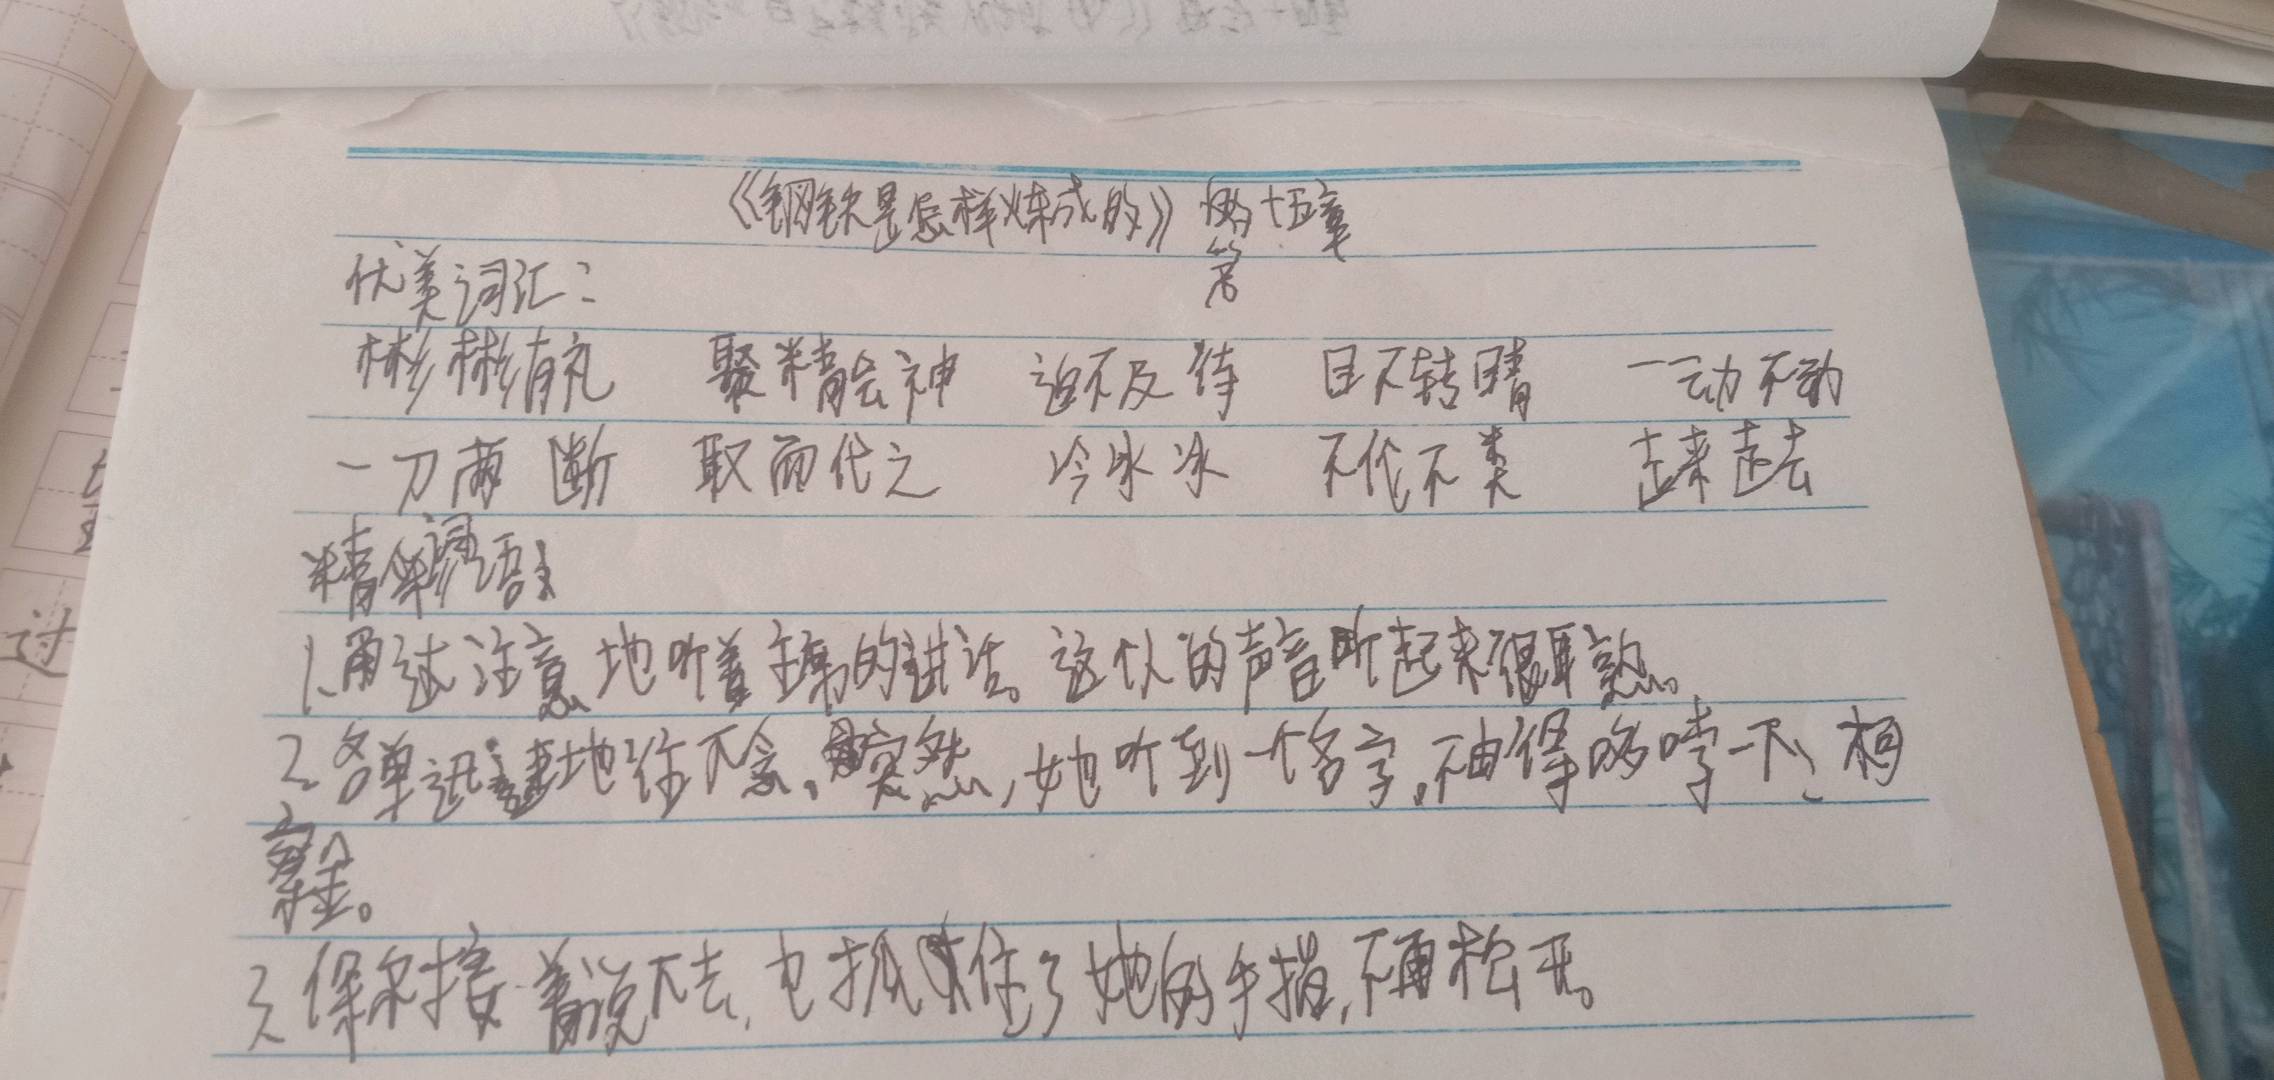 《钢铁是怎样炼成的》第十五章
优美词汇：
彬彬有礼 聚精会神 迫不及待 目不转睛 一动不动
一刀两断 取而代之 冷冰冰 不伦不类 走来走去
精华词语：
1、注意地听着的讲话。这个人的声音听起来很耳熟。
2、名单迅速地往下念。突然，她听到一个名字，不由得哆嗦一下、柯
察金。
3、保尔接着说下去，也抓住了她的手指，不再松开。
过